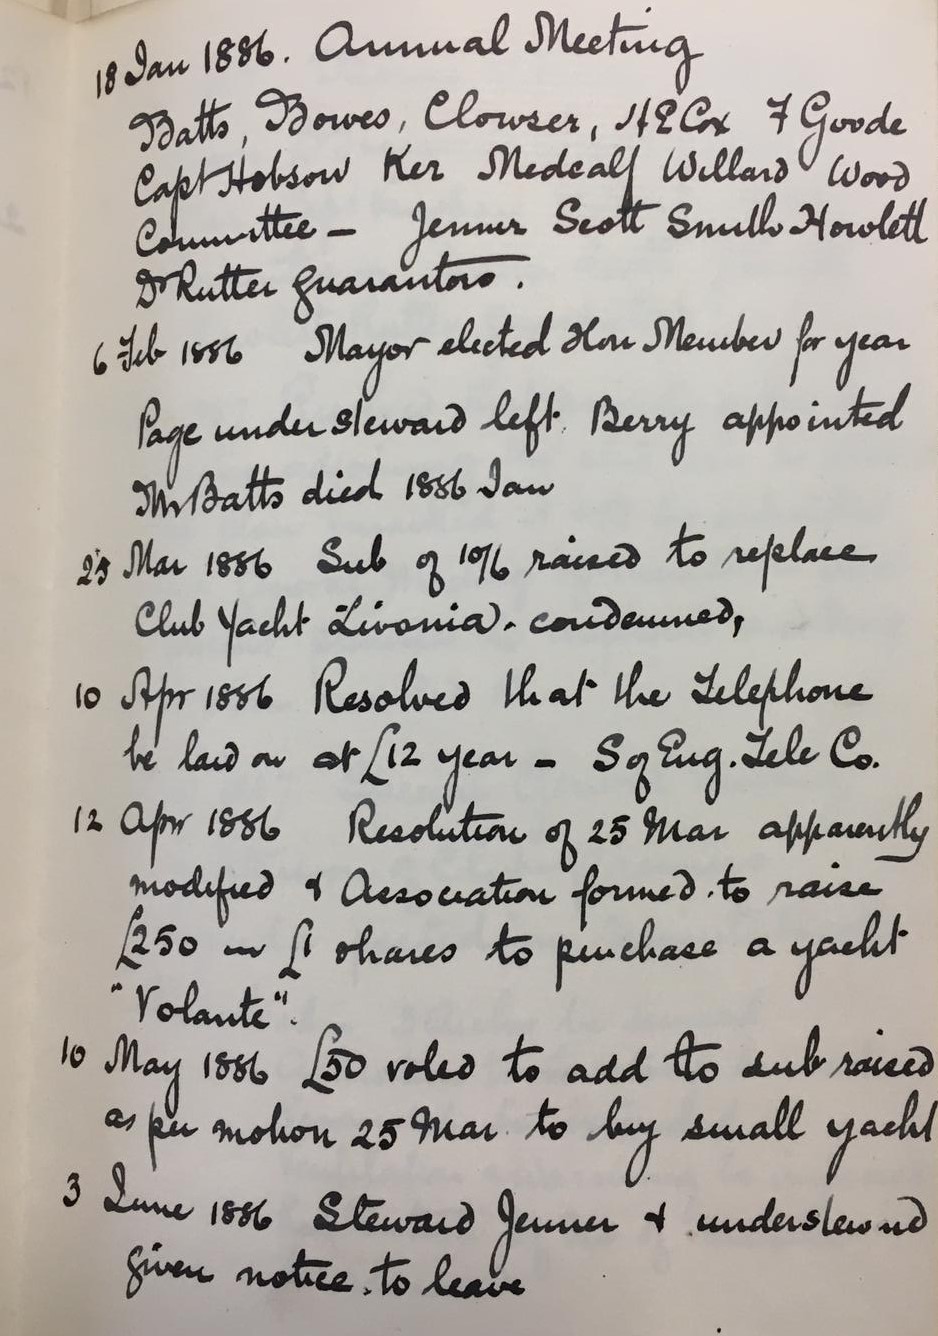 18 Jan 1886. Annual Meeting
Batts, Bowes, Clowser, H E Cox F Goode
Capt Hobson Ker Medcalf Willard Wood
Committee – Jenner Scott Smith Howlett
Dr Rutter guarantors.
6 Feb 1886 Mayor elected Hon Member for year
Page under steward left. Berry appointed
Mr Batts died 1886 Jan
25 Mar 1886 Sub of 10/6 raised to replace
Club Yacht Livonia. condemned,
10 Apr 1886 Resolved that the Telephone
be laid on at £12 year – S of Eng. Tele Co.
12 Apr 1886 Resolution of 25 Mar apparently
modified & Association formed. to raise
£250 in £1 shares to purchase a yacht
"Volante".
10 May 1886 £50 voted to add to sub raised
as per motion 25 Mar. to buy small yacht
3 June 1886 Steward Jenner & understeward
given notice. to leave